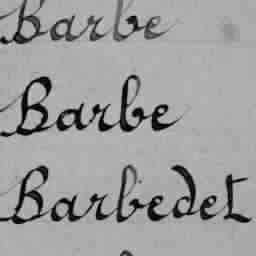 Barbe
Barbe
Barbedet